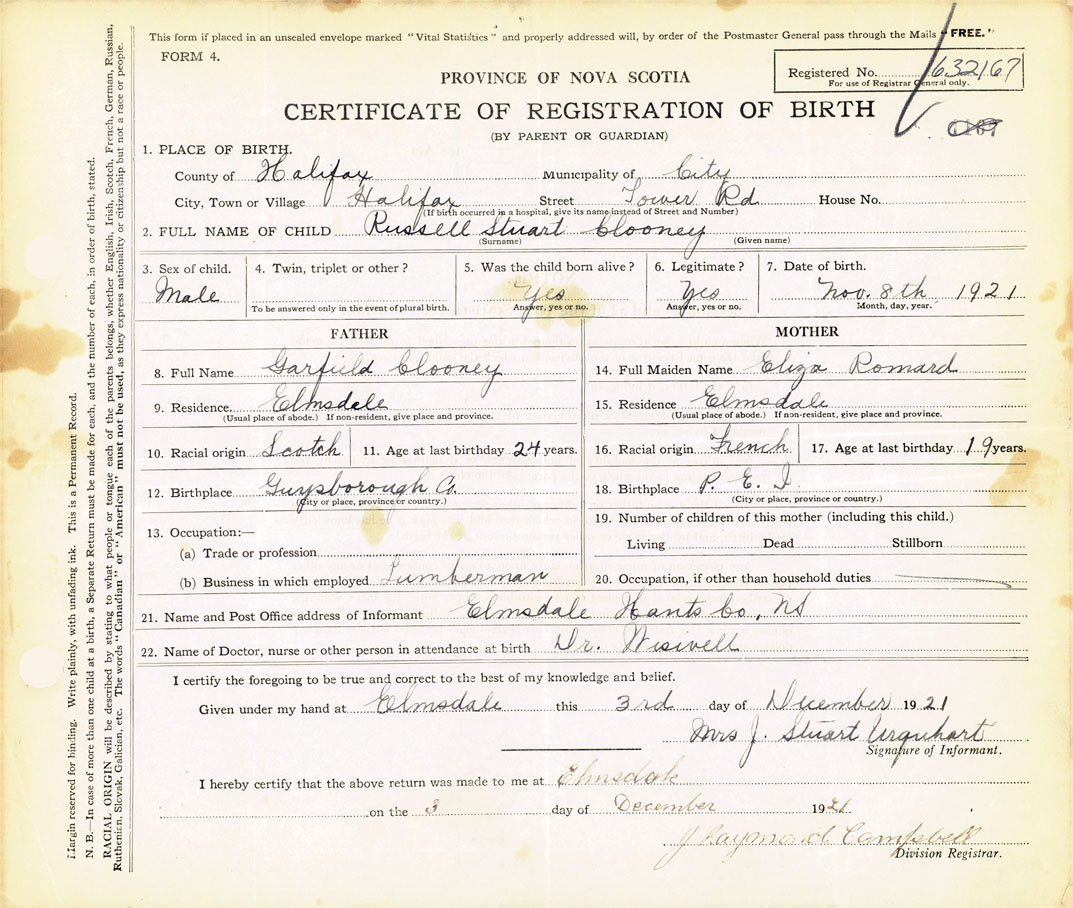 This form if placed in an unsealed envelope marked "Vital Statistics" and properly addressed will, by order of the Postmaster General pass through the Mails "FREE."
FORM 4.
Registered No. 632167
For use of Registrar General only.
PROVINCE OF NOVA SCOTIA
CERTIFICATE OF REGISTRATION OF BIRTH
(BY PARENT OR GUARDIAN)
1. PLACE OF BIRTH.
County of Halifax Municipality of City
City, Town or Village Halifax Street Tower Rd House No.
(If birth occurred in a hospital, give its name instead of Street and Number)
2. FULL NAME OF CHILD Russell Stuart Clooney
(Surname) (Given name)
3. Sex of child. 4. Twin, triplet or other? 5. Was the child born alive? 6. Legitimate? 7. Date of birth.
Male Yes Yes Nov. 8th 1921
To be answered only in the event of plural birth. Answer, yes or no. Answer, yes or no. Month, day, year.
FATHER
8. Full Name Garfield Clooney
9. Residence. Elmsdale
(Usual place of abode.) If non-resident, give place and province.
10. Racial origin Scotch 11. Age at last birthday 24 years.
12. Birthplace Guysborough Co.
(City or place, province or country.)
13. Occupation:—
(a) Trade or profession
(b) Business in which employed Lumberman
MOTHER
14. Full Maiden Name Eliza Romard
15. Residence Elmsdale
(Usual place of abode.) If non-resident, give place and province.
16. Racial origin French 17. Age at last birthday 19 years.
18. Birthplace P. E. I.
(City or place, province or country.)
19. Number of children of this mother (including this child.)
Living Dead Stillborn
20. Occupation, if other than household duties
21. Name and Post Office address of Informant Elmsdale Hants Co, NS
22. Name of Doctor, nurse or other person in attendance at birth Dr.
I certify the foregoing to be true and correct to the best of my knowledge and belief.
Given under my hand at Elmsdale this 3rd day of December 1921
Mrs J. Stuart Urquhart
Signature of Informant.
I hereby certify that the above return was made to me at Elmsdale
on the 3 day of December 1921
J Raymond Campbell
Division Registrar.
Margin reserved for binding. Write plainly, with unfading ink. This is a Permanent Record.
N. B.—In case of more than one child at a birth, a Separate Return must be made for each, and the number of each, in order of birth, stated.
RACIAL ORIGIN will be described by stating to what people or tongue each of the parents belongs, whether English, Irish, Scotch, French, German, Russian,
Ruthenian, Slovak, Galician, etc. The words "Canadian" or "American" must not be used, as they express nationality or citizenship but not a race or people.